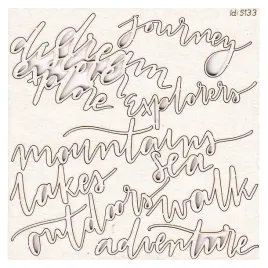 Id: 5133
journey
dream
explore
explorers
mountains
sea
lakes
outdoors
walk
adventure